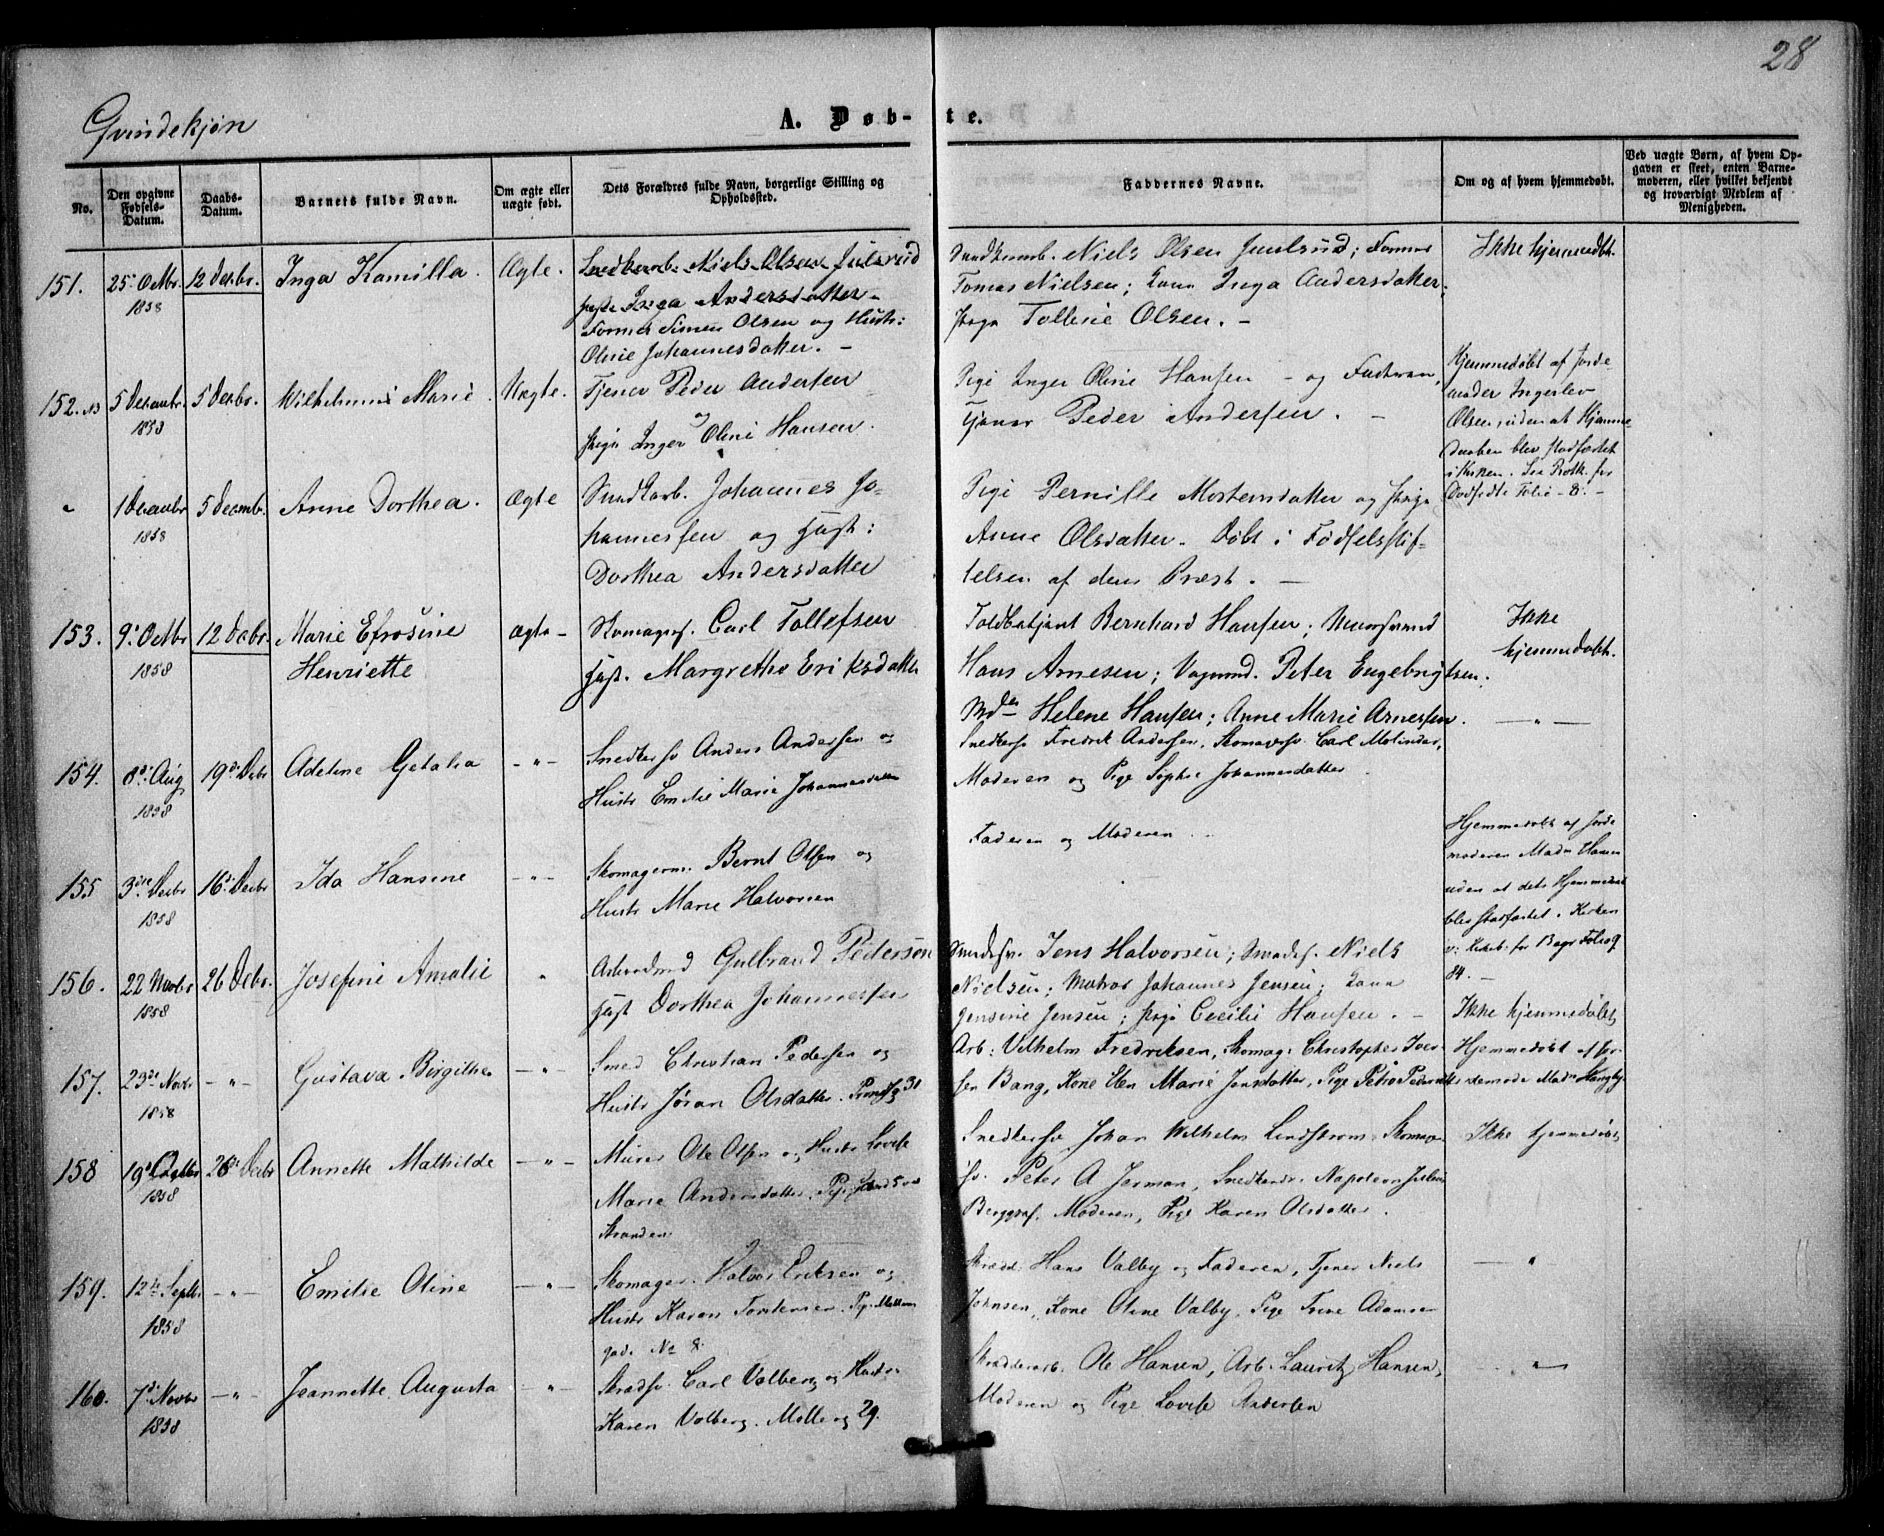 28
Qvindekjøn
A. Døb-te.
No.
Den opgivne Fødsels-Datum.
Daabs-Datum.
Barnets fulde Navn.
Om ægte eller uægte født.
Dets Forældres fulde Navn, borgerlige Stilling og Opholdssted.
Faddernes Navne.
Om og af hvem hjemmedøbt.
Ved uægte Børn, af hvem Opgaven er skeet, enten Barnemoderen, eller hvilket bekjendt og troværdigt Medlem af Menigheden.
151. 25 Octbr. 1858
12 Decbr.
Inga Kamilla.
Ægte.
Snedkerarb. Niels Olsen Julsrud
Inga Andersdatter
Former Simen Olsen og Hustr:
Oline Johannesdatter. -
Niels Olsen Juulsrud; Former
Tomas Nielsen; Kone Inga Andersdatter,
Pige Tolline Olsen. -
Ikke hjemmedøbt.
152. 5 Decembr. 1858
5 Decbr.
Wilhelmine Marie.
Uægte.
Tjener Peder Andersen
og
Pige Inger Oline Hansen.
Pige Inger Oline Hansen - og Faderen,
Tjener Peder Andersen. -
Hjemmedøbt af Jorde-
moder Ingerlev
Olsen, uden at Hjemme-
daaben blev stadfæstet
i Kirken. See Protk. for
Dødfødte Folio 8. -
" 1 Decembr 1858
5 Decemb.
Anne Dorthea.
Ægte
Johannes Jo-
hannessen og Hust:
Dorthea Andersdatter
Pige Pernille Mortensdatter og Pige
Anne Olsdatter. Døbt i Fødselsstif-
telsen af dens Præst. -
153. 9 Octbr 1858
12 Decbr.
Marie Efrosine
Henriette
Ægte -
Skomagersv. Carl Tollefsen
Hust. Margrethe Eriksdatter
Toldbetjent Bernhard Hansen; Muursvend
Hans Arnesen; Vognmd. Peter Engebrigtsen;
Mdm Helene Hansen; Anne Marie Arnesen.
Ikke
hjemmedøbt.
154. 8de Aug 1858
19de Decbr
Adeline Getalia
- " -
Snedkersv Anders Andersen og
Hustr Emilie Marie Johannesdatter
Snedkersv Fredrik Andersen, Skomagersv. Carl Molinder,
Moderen og Pige Sophie Johannesdatter
- " -
155 3die Decbr 1858
16de Decbr
Ida Hansine
- " -
Skomagerm. Bernt Olsen og
Hustr Marie Halvorsen
Faderen og Moderen
Hjemmedøbt af Jorde
moderen Madm Hansen
uden at dets Hjemmedaab
blev stadfæstet i Kirken
v: Kirkeb: for Bagr Folio 9
84. -
156. 22 Novbr 1858
26 Decbr.
Josefine Amalie
"
Arbeidsmd Gulbrand Pedersen
Hust Dorthea Johannessen
Jens Halvorsen; Niels
Nielsen; Matros Johannes Jensen; Kone
Jensine Jensen; Pige Cecilie Hansen. -
Ikke hjemmedøbt,
157. 23de Novbr 1858
- " -
Gustava Birgithe
- " -
Smed Christian Pedersen og
Hustr Jøran Olsdatter. 31
Arb: Vilhelm Fredriksen, Skomag: Christopher Iver-
sen Bang, Kone Elen Marie Jensdatter, Pige Petra Pedersdtr
Hjemmedøbt af Jor-
demoder Madm Stangby.
158 19de Octbr 1858
26de Decbr
Annette Mathilde
- " -
Murer Ole Olsen og Hustr Lovise
Marie Andersdatter,
Stranden
Snedkersv Johan Wilhelm Lindstrøm, Skomager
sv. Peter A Jerman, Napoleon
Berggraf. Moderen, Pige Karen Olsdatter.
Ikke hjemmedøbt
159. 12te Septbr 1858
- " -
Emilie Oline
- " -
Skomager. Halvor Eriksen og
Hustr Karen Torstensen,
gade No 8.
Skrædd. Hans Valby og Faderen, Tjener Niels
Johnsen, Kone Oline Valby, Pige Trine Adamsen
- " -
160. 7de Novbr 1858
- " -
Jeannette Augusta
- " -
Skrædsv. Carl Valberg og Hustr.
Karen Valberg. Mollerg 29.
Skrædderarb. Ole Hansen, Arb. Lauritz Hansen,
Moderen og Pige Lovise Andersen
- " -